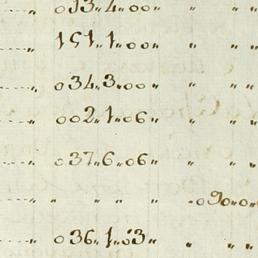 013„4„00„ „ „ „
151„1„00„ „ „ „
034„3„00„ „ „ „
002„1„06„ „ „ „
037„6„06„ „ „ „
„ „ „ „ -09„0„0„
036„1„03„ „ „ „